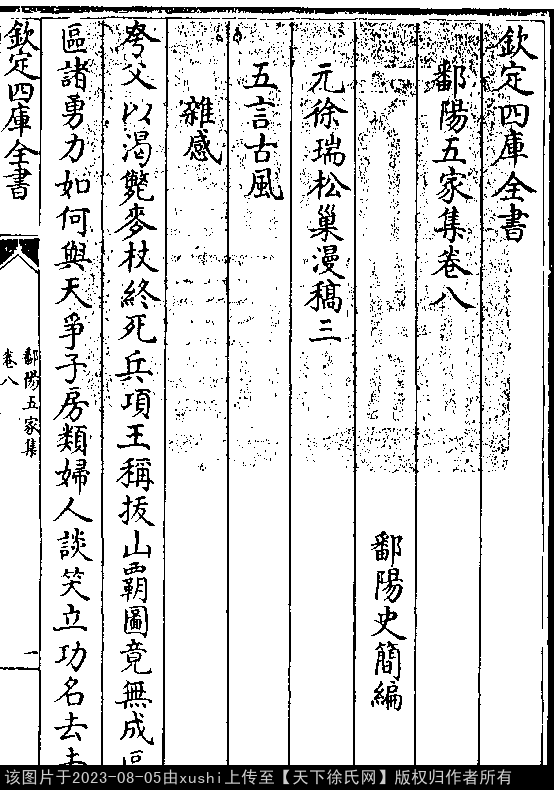 欽定四庫全書
鄱陽五家集卷八
鄱陽史簡編
元徐瑞松巢漫稿三
五言古風
雜感
夸父以渴斃麥杖終死兵項王稱拔山覇圖竟無成
區諸勇力如何與天爭子房類婦人談笑立功名去
欽定四庫全書
鄱陽五家集
卷八
一
该图片于2023-08-05由xushi上传至【天下徐氏网】版权归作者所有